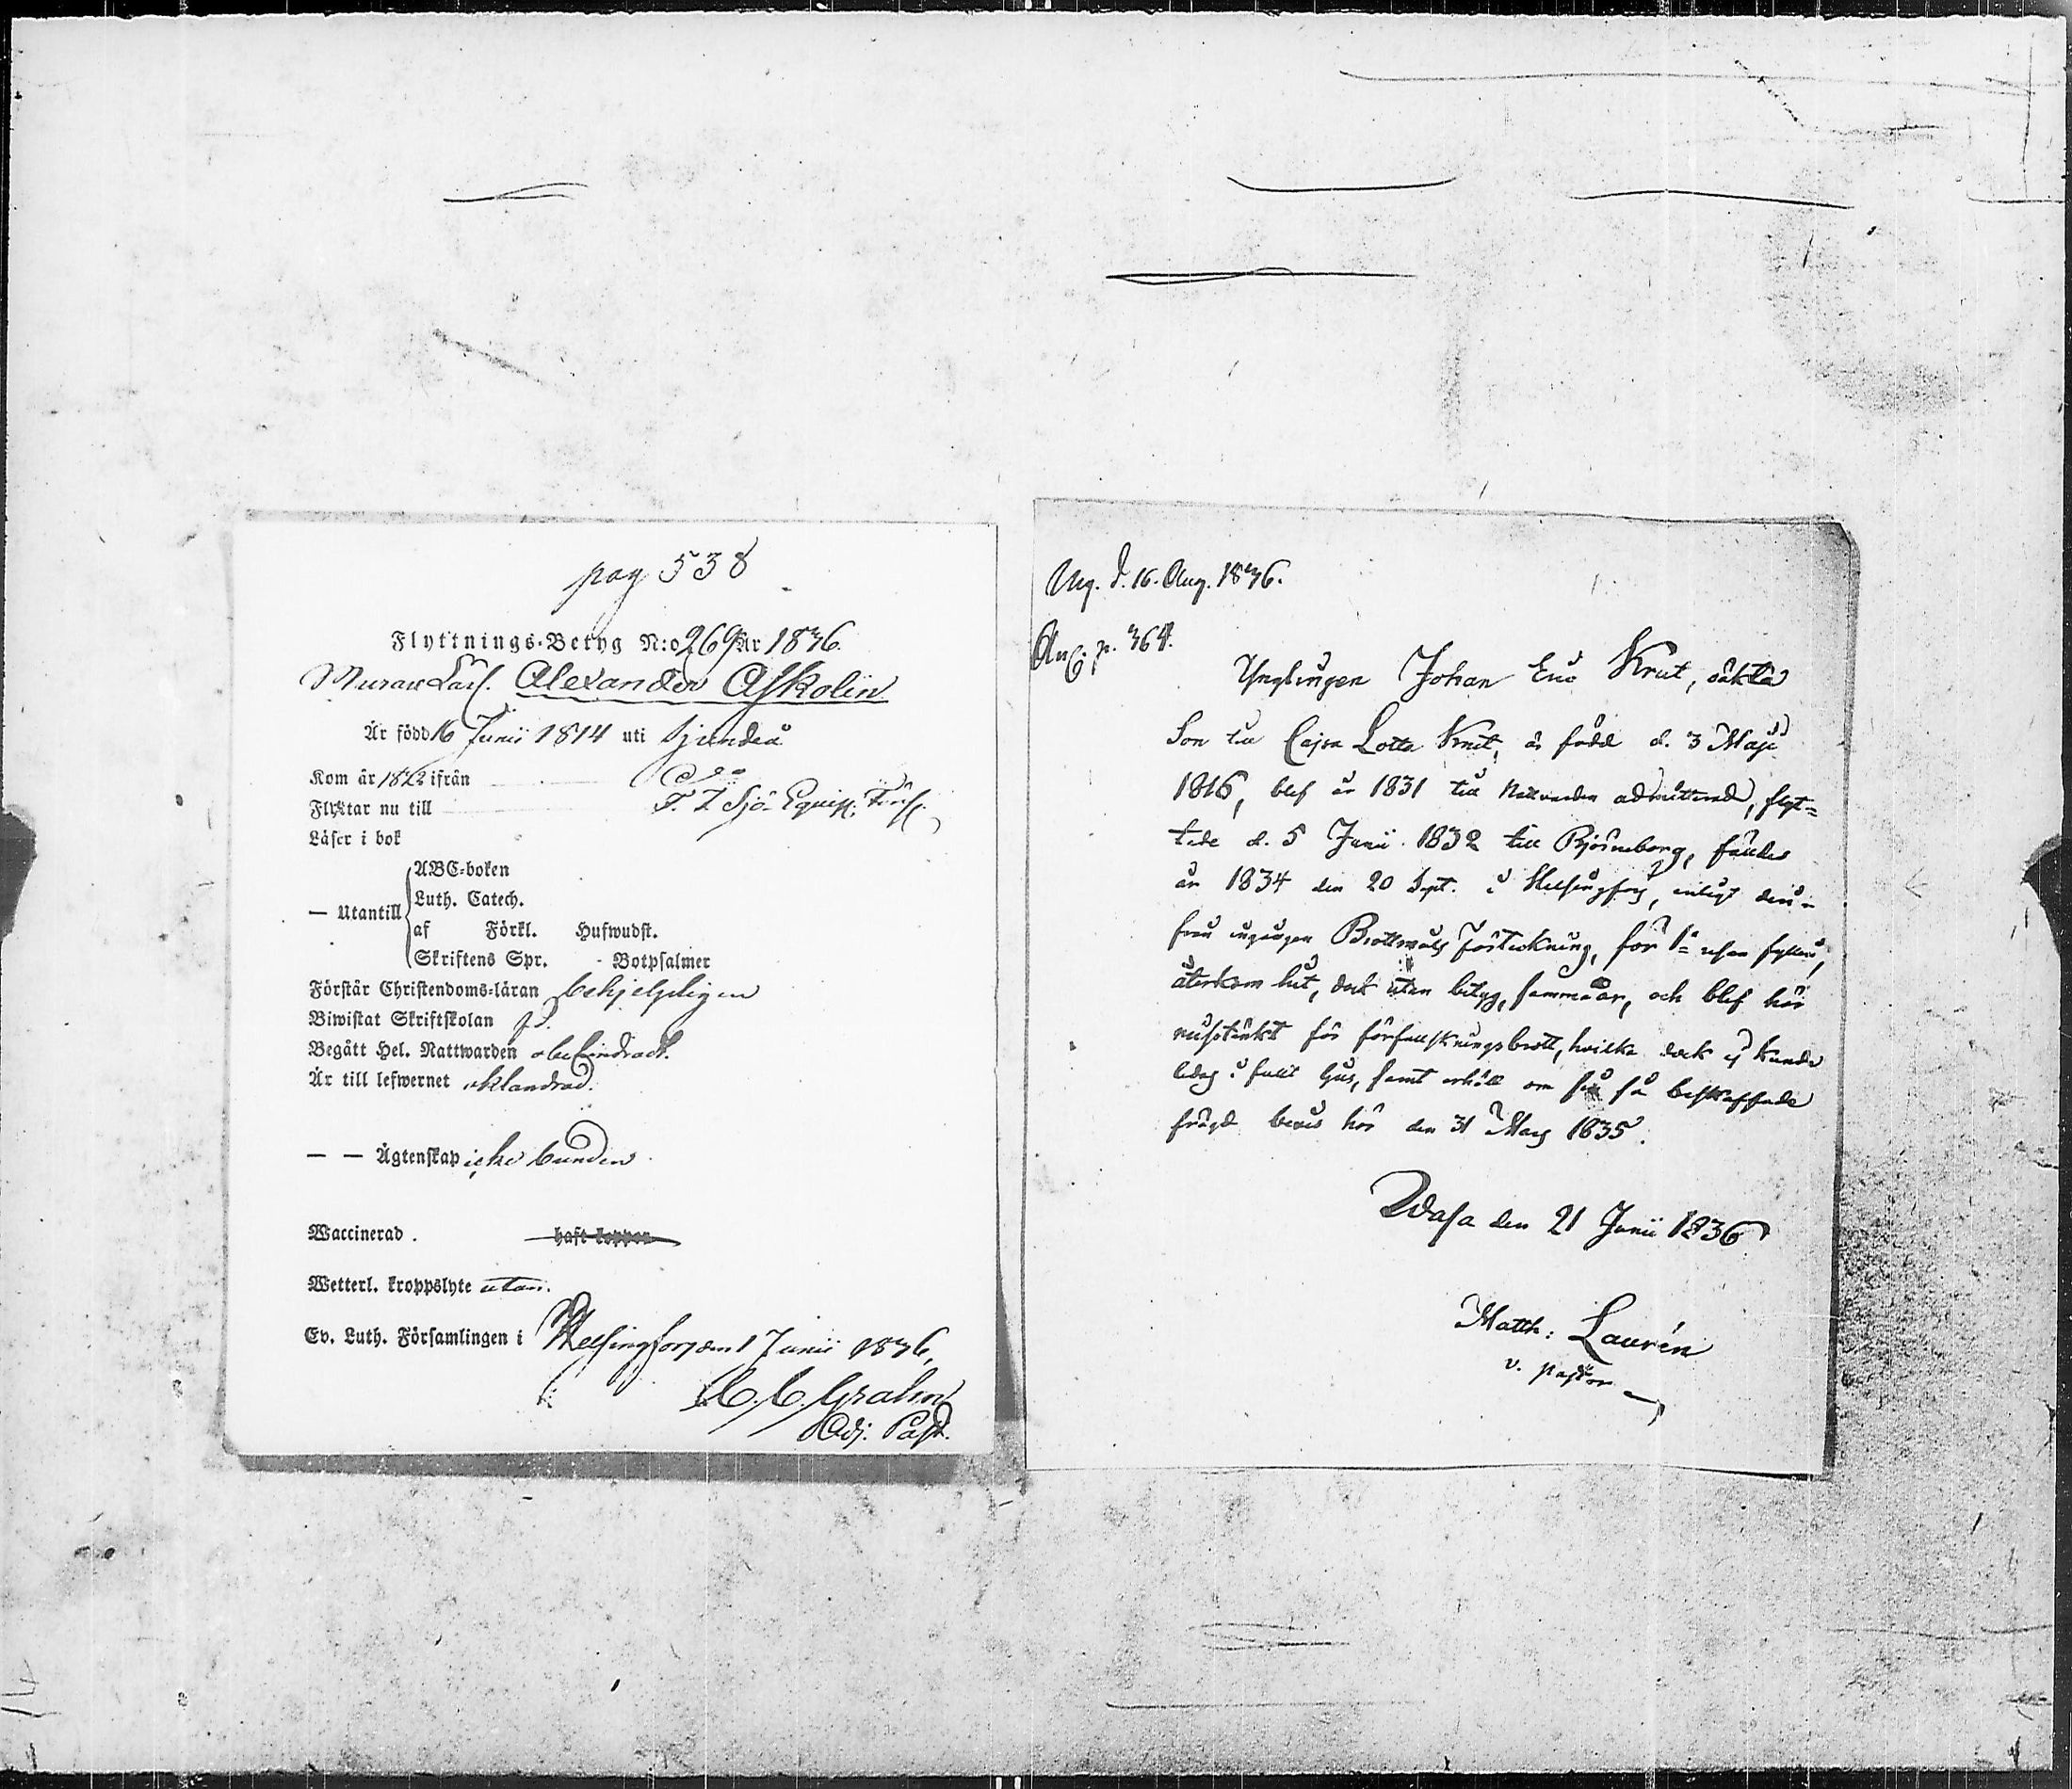 pag 538
Flyttnings-Betyg N:o 269 År 1836.
Murare Lärl. Alexander Askolin
Är född 16 Junii 1814 uti Sjundeå
Kom år 1822 ifrån
Flyttar nu till F. F. Sjö Equip.
Läser i bok
ABC-boken
Luth. Catech.
— Utantill
af Förkl. Hufwudst.
Skriftens Spr. - Botpsalmer
Förstår Christendoms-läran behjelpligen
Biwistat Skriftskolan
Begått Hel. Nattwarden obehindradt.
Är till lefwernet oklandrad.
— — Ägtenskap icke bunden
Waccinerad.
haft koppor
Wetterl. kroppslyte utan.
Ev. Luth. Församlingen i Helsingfors den 1 Junii 1836,
C. C. Grahn
Adj. Past.
Upg. d. 16. Aug. 1836.
p. 364.
Ynglingen Johan Eric Krut, oäkta
Son till Cajsa Lotta Krut, är född d. 3 Maji
1816, blef år 1831 till Nattvarden admitterad, flyt=
tade d. 5 Junii 1832 till Björneborg, fälldes
år 1834 den 20 Sept. i Helsingfors, enligt deri-
från ingången Brottmåls Förteckning, för 1:a resan fylleri,
återkom hit, dock utan betyg, samma år, och blef här
misstänkt för förfalskningsbrott, hvilka dock ej kunde
ledas i fullt ljus, samt erhöll om så beskaffade
frägd bevis här den 31 Mars 1835.
Wasa den 21 Junii 1836
Matth: Laurén
v. pastor